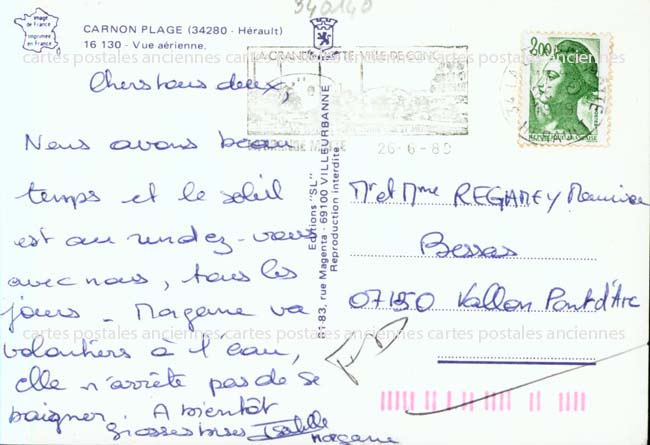 340140
Image de France
Imprimée en France
CARNON PLAGE (34280 - Hérault)
16 130 - Vue aérienne.
Chers tous deux,
Nous avons beau
temps et le soleil
est au rendez-vous
avec nous, tous les
jours - Morgane va
volontiers à l'eau,
elle n'arrête pas de se
baigner. A bientôt
grosses bises Isabelle
Morgane
Editions "SL"
81-83, rue Magenta - 69100 VILLEURBANNE
Reproduction interdite
LA GRANDE MOTTE VILLE DE CONGRES
LA GRANDE MOTTE
26-6-89
2,00
REPUBLIQUE FRANCAISE
Mr et Mme REGAMEY Maurice
Bessas
07150 Vallon Pont d'Arc
cartes postales anciennes cartes postales anciennes cartes postales anciennes
cartes postales anciennes cartes postales anciennes cartes postales anciennes